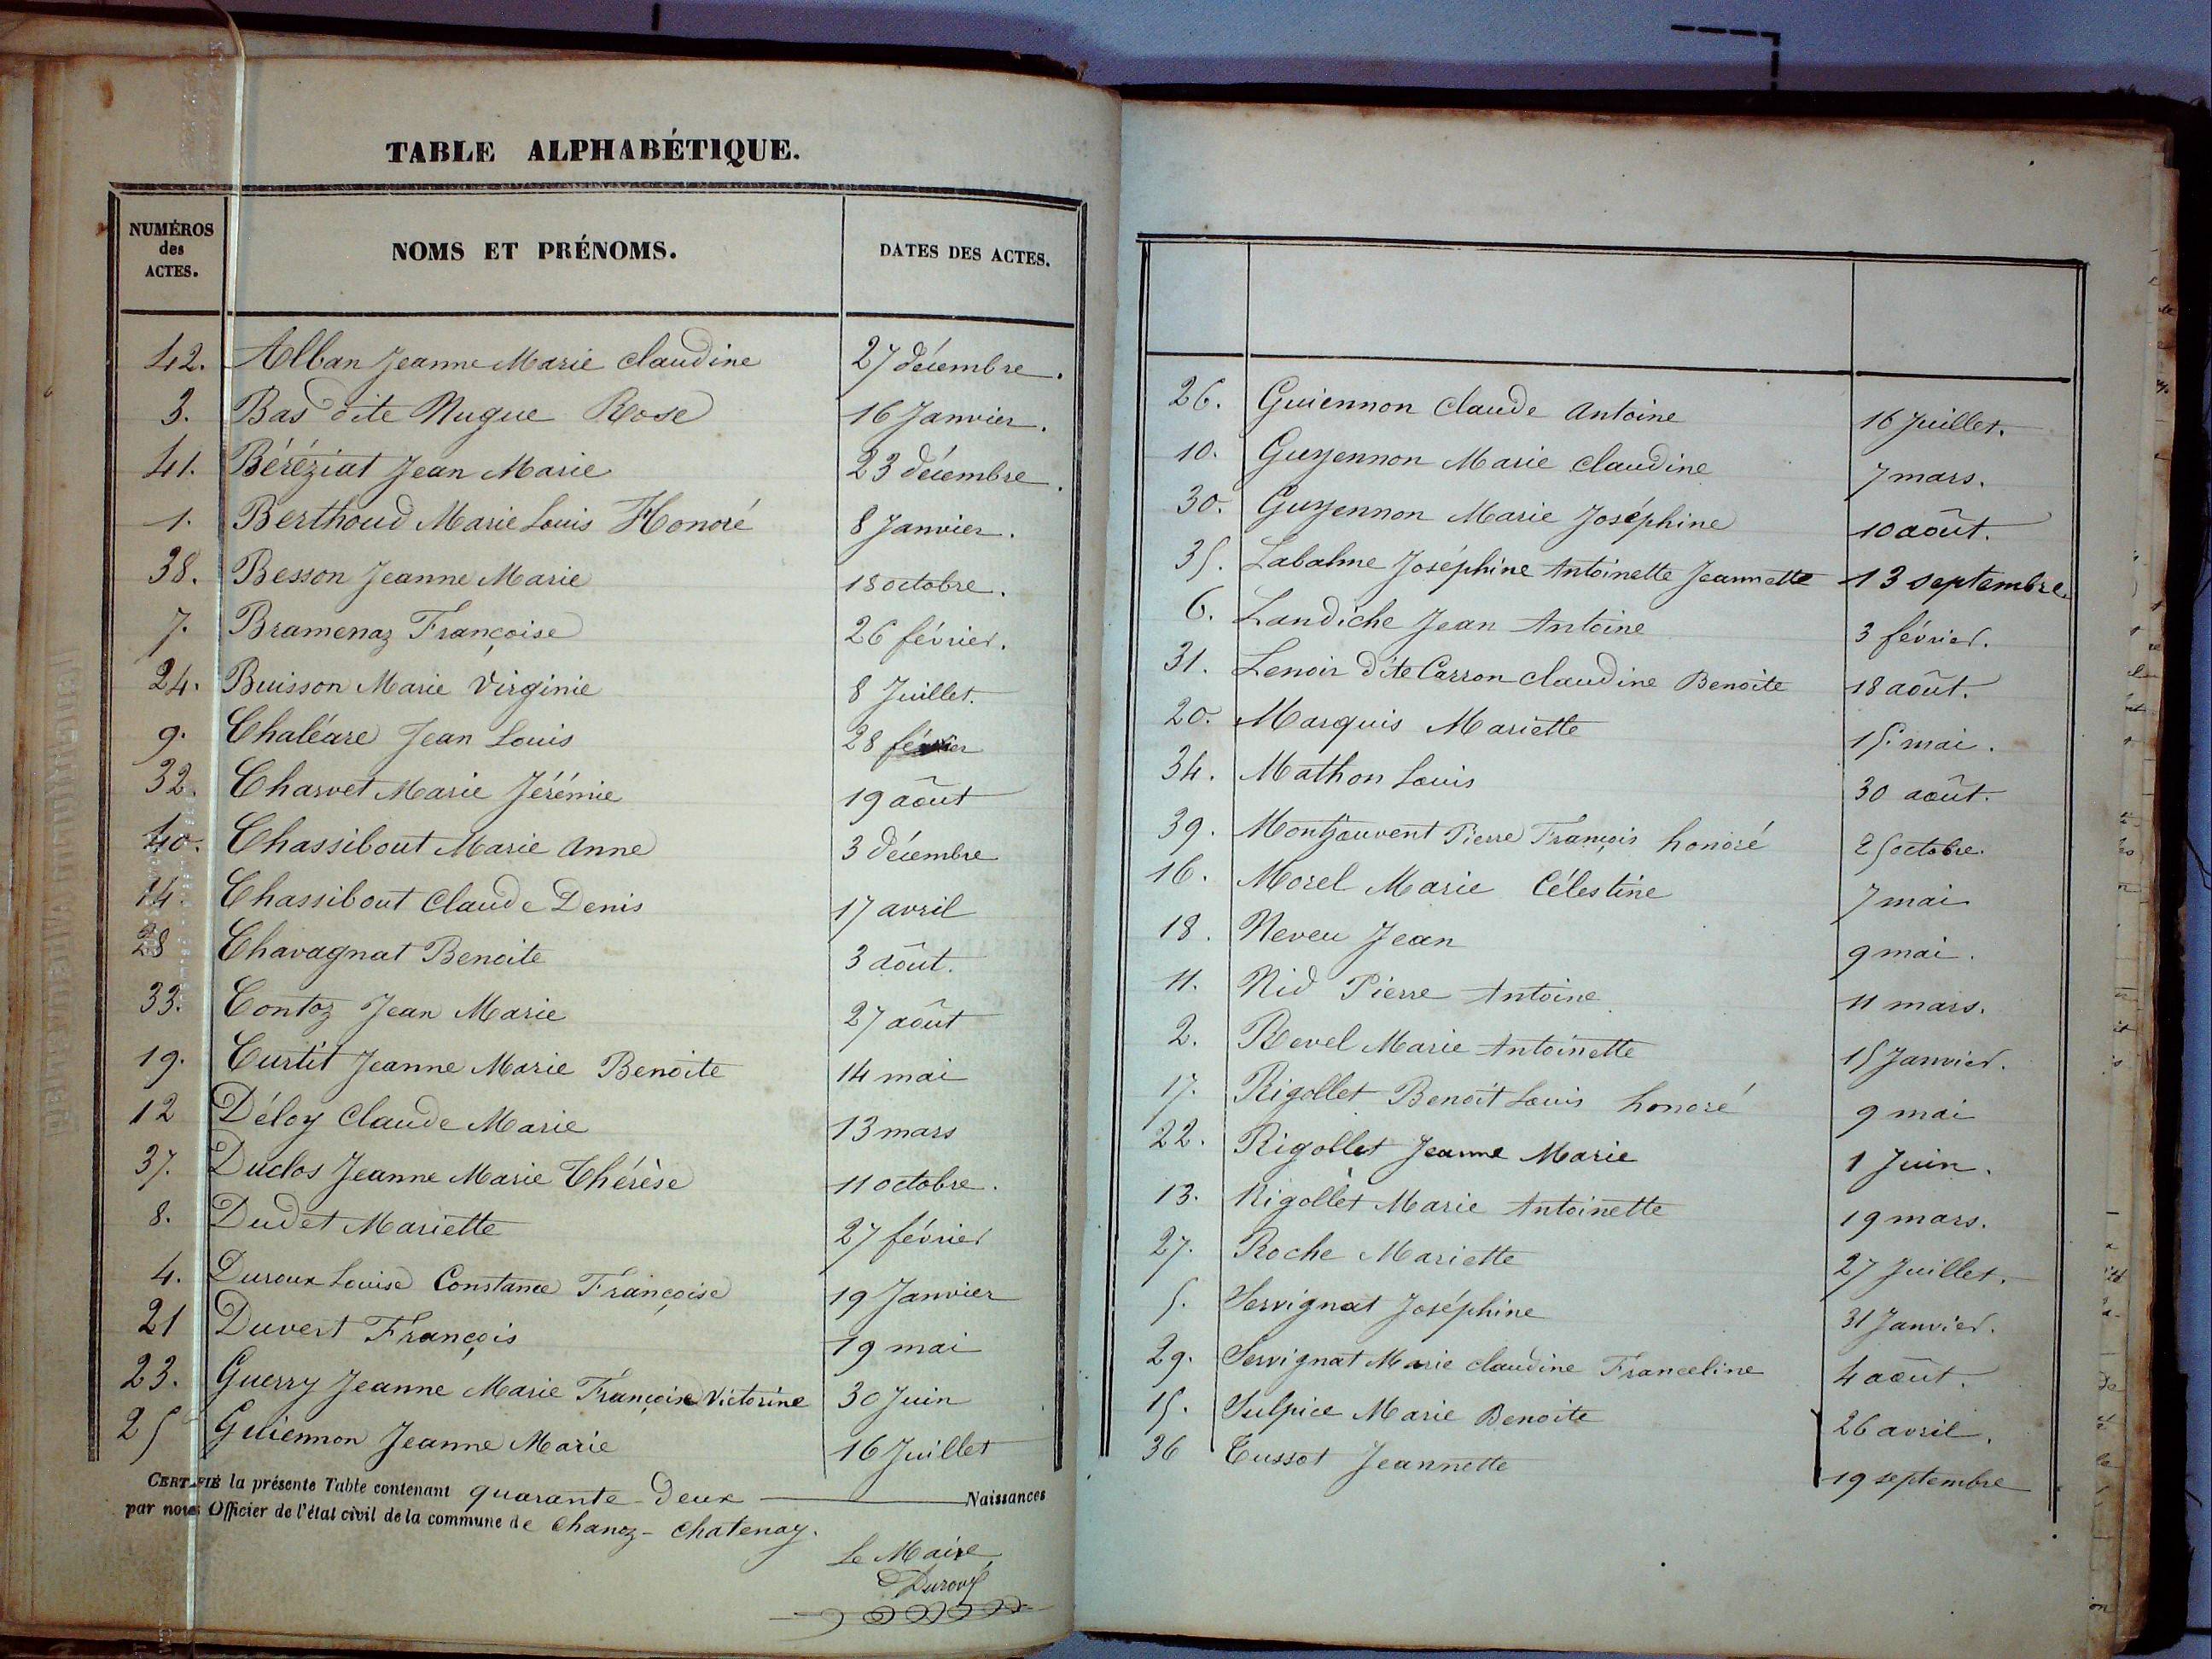 TABLE ALPHABÉTIQUE.
NUMÉROS des ACTES. NOMS ET PRÉNOMS. DATES DES ACTES.
42. Alban Jeanne Marie Claudine 27 décembre.
3. Bas dite Nugue Rose 16 Janvier.
41. Béréziat Jean Marie 23 décembre.
1. Berthoud Marie Louis Honoré 8 Janvier.
38. Besson Jeanne Marie 18 octobre.
7. Bramenaz Françoise 26 février.
24. Buisson Marie Virginie 8 Juillet.
9. Chaléare Jean Louis 28 février
32. Charvet Marie Jérémie 19 août
40. Chassibout Marie Anne 3 décembre
14. Chassibout Claude Denis 17 avril
28 Chavagnat Benoite 3 août.
33. Contoz Jean Marie 27 août
19. Curtit Jeanne Marie Benoite 14 mai
12 Déloy Claude Marie 13 mars
37. Duclos Jeanne Marie Thérèse 11 octobre.
8. Dudet Mariette 27 février
4. Duroux Louise Constance Françoise 19 Janvier
21 Duvert François 19 mai
23. Guerry Jeanne Marie Françoise Victorine 30 Juin
25 Guiennon Jeanne Marie 16 Juillet
CERTIFIÉ la présente Table contenant quarante-deux Naissances
par nous Officier de l'état civil de la commune de Chanoz-Chatenay.
Le Maire
Duroux
26. Guiennon Claude Antoine 16 Juillet.
10. Guyennon Marie Claudine 7 mars.
30. Guyennon Marie Joséphine 10 août.
35. Labalme Joséphine Antoinette Jeannette 13 septembre.
6. Landiche Jean Antoine 3 février.
31. Lenoir dite Carron Claudine Benoite 18 août.
20. Marquis Mariette 15 mai.
34. Mathon Louis 30 août.
39. Montjouvent Pierre François honoré 25 octobre.
16. Morel Marie Célestine 7 mai
18. Neveu Jean 9 mai.
11. Nid Pierre Antoine 11 mars.
2. Revel Marie Antoinette 15 Janvier.
17. Rigollet Benoît Louis honoré 9 mai
22. Rigollet Jeanne Marie 1 Juin.
13. Rigollet Marie Antoinette 19 mars.
27. Roche Mariette 27 Juillet.
5. Servignat Joséphine 31 Janvier.
29. Servignat Marie Claudine Franceline 4 août.
15. Sulpice Marie Benoite 26 avril.
36 Tussot Jeannette 19 septembre